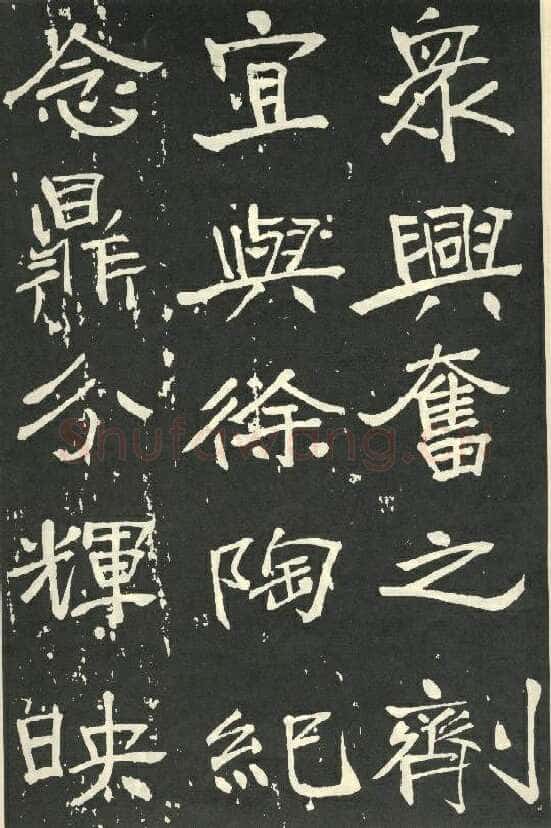 衆興奮之劑
宜與徐陶紀
念鼎分輝映